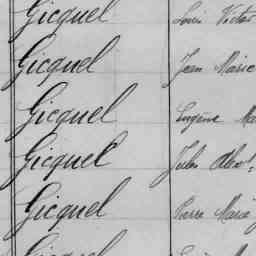 Gicquel Louis Victor
Gicquel Jean Marie
Gicquel Eugène Ma
Gicquel Jules
Gicquel Pierre Marie
Gicquel